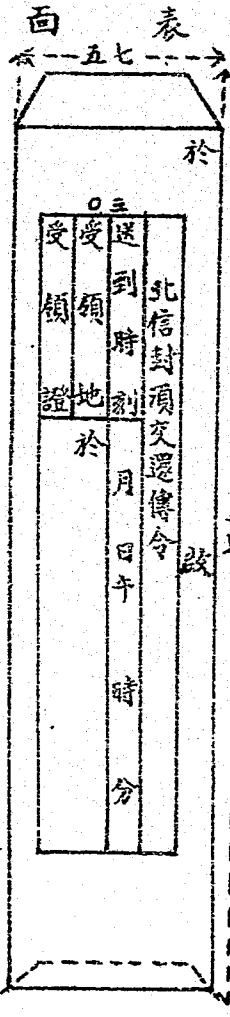 表面
七五
於
啟
三〇
此信封須交還傳令
送到時刻 月 日午 時 分
受領地 於
受領證